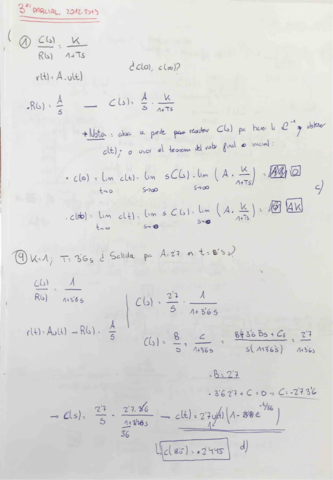 3er PARCIAL 2012-2013
① C(s)/R(s) = K/(1+Ts) ¿C(0), c(∞)?
r(t) = A·u(t)
·R(s) = A/s — C(s) = A/s · K/(1+Ts)
→ Nota: ahora se puede para resolver C(s) pa hacer la ℒ⁻¹ y obtener
c(t); o usar el teorema del valor final o inicial:
· c(0) = lim c(t) = lim s C(s) = lim (A · K/(1+Ts)) = 0
t→0 s→∞ s→∞
c)
· c(∞) = lim c(t) = lim s C(s) = lim (A · K/(1+Ts)) = AK
s→0 s→0
④ K=1; T=3'6s ¿Salida pa A=27 en t=8's s?
C(s)/R(s) = 1/(1+3'6s)
C(s) = 27/s · 1/(1+3'6s)
r(t) = Au(t) → R(s) = A/s
C(s) = B/s + C/(1+3'6s) = (B+3'6Bs+Cs)/(s(1+3'6s)) = 27/
· B = 27
· 3'6·27 + C = 0 → C = -27·3'6
→ C(s) = 27/s - 27·3'6/(1+3'6s) → c(t) = 27u(t)(1-e^(-t/3'6))
3'6
= 24'45 d)